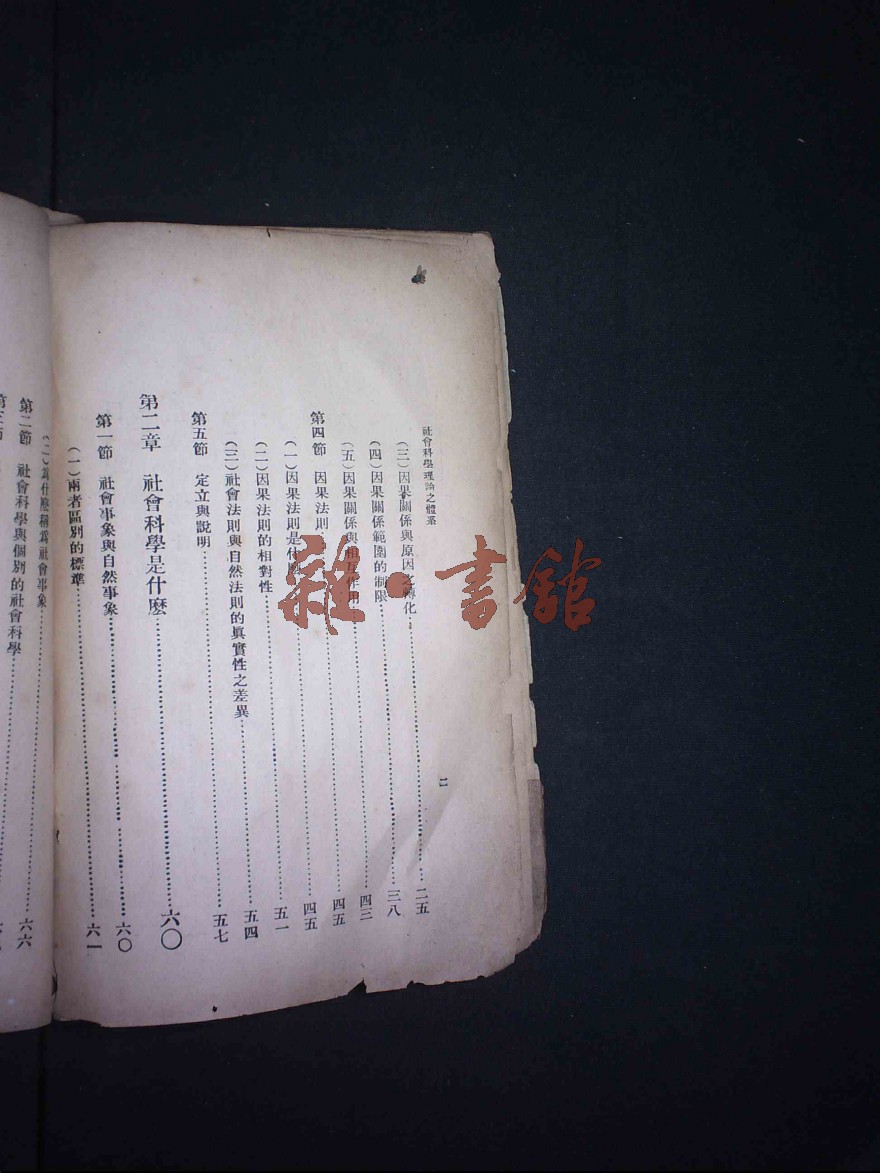 社會科學理論之體系 二
(三)因果關係與原因之轉化……二五
(四)因果關係範圍的制限……三八
(五)因果關係與相互作用……四三
第四節 因果法則……四五
(一)因果法則是什麼……四五
(二)因果法則的相對性……五一
(三)社會法則與自然法則的眞實性之差異……五四
第五節 定立與說明……五七
第二章 社會科學是什麽……六〇
第一節 社會事象與自然事象……六〇
(一)兩者區別的標準……六一
(二)為什麽稱為社會事象……六六
第二節 社會科學與個別的社會科學……
雜·書館